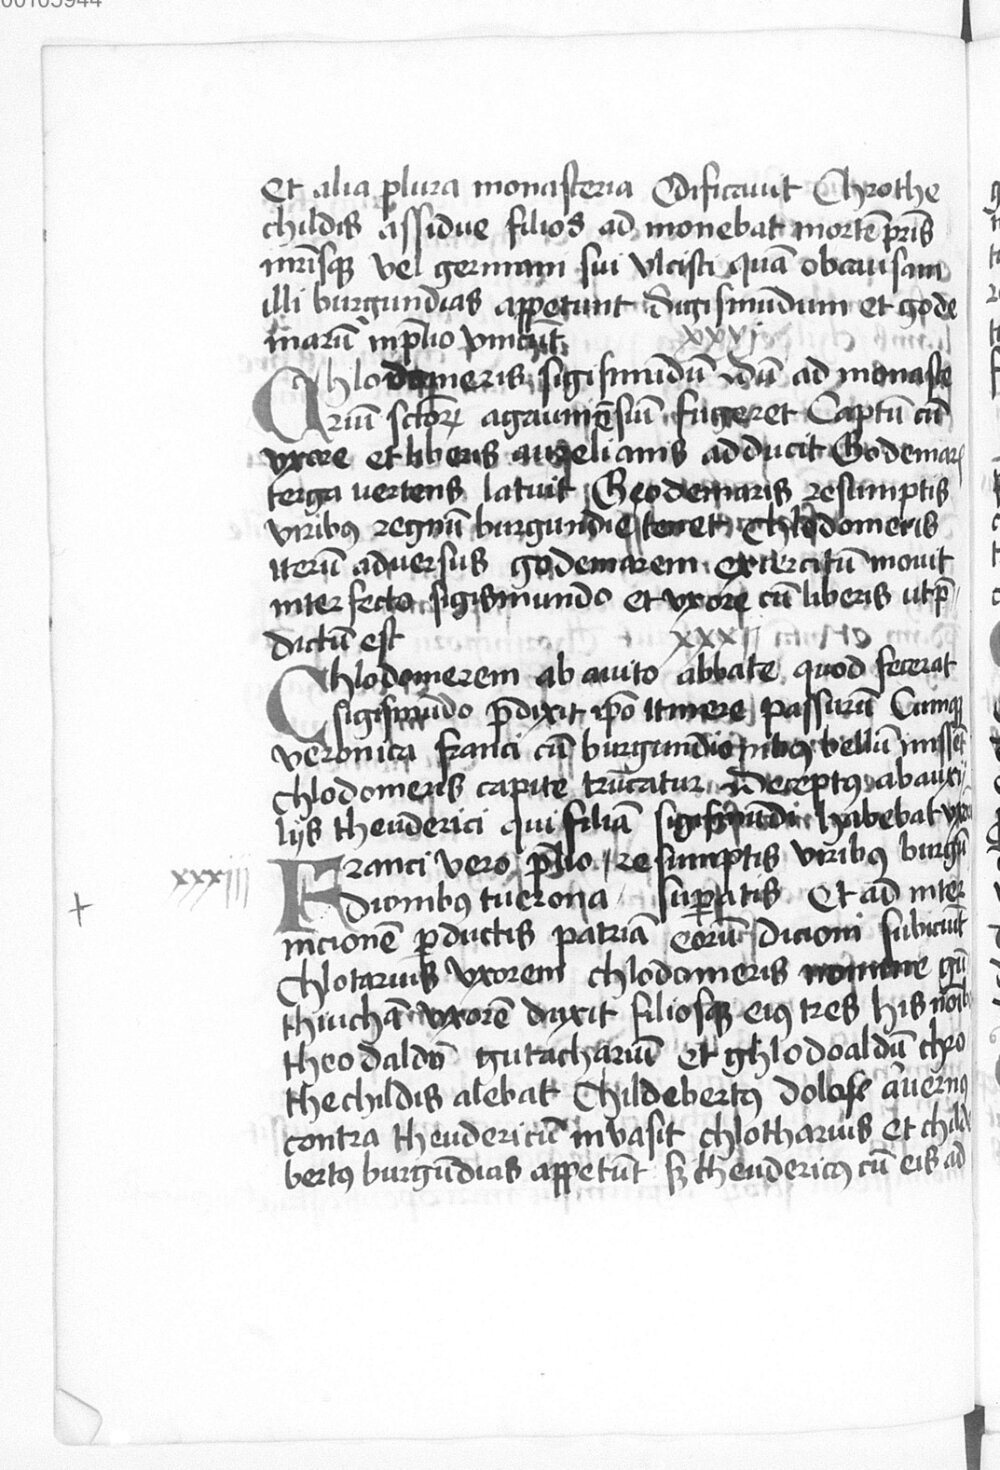 00103944
Et alia plura monasteria Edificauit Chrothe
childis assidue filios ad monebat mortē pr̄is
mr̄isqꝫ vel germani sui vlcisci quā ob causam
illi burgundias appetunt Sigismūdum et gode
marū in p̄lio vincūt
xxxj
Chlodomeris sigismūdū dū ad monaste
riū sctoꝝ agaunēsiū fugeret Captū cū
vxore et liberis aurelianis adducit Godemaꝝ
terga uertens latuit Geodemaris resumptis
viribꝯ regnū burgundie tenet Chlodomeris
iterū aduersus godemarem exercitū mouit
interfecto sigismundo et vxore cū liberis ut p̄
dictū est
xxxij
Chlodomerem ab auito abbate quod fecerat
sigismūdo p̄dixit ip̄o itinere passurū Cumqꝫ
veronica franci cū burgundionibꝯ bellū inissēt
chlodomeris capite trūcatur Deceptꝯ ab auxi
lijs theuderici qui filiā sigismūdi habebat vxorē
xxxiij
Franci vero p̄lio resumptis viribꝯ burgū
dionibꝯ tuerona suꝑatis Et ad inter
incionē ꝑductis patriā eorū dicioni subiciūt
Chlotarius vxorem chlodomeris nomine gū
thiuchā vxorē duxit filiosqꝫ eiꝯ tres his noībꝯ
theodaldū gutacharium et ghlodoaldū chro
thechildis alebat Childebertꝯ dolose auernꝯ
contra theudericū inuasit chlotharius et child
bertꝯ burgūdias appetūt sꝫ theudericꝯ cū eis ad